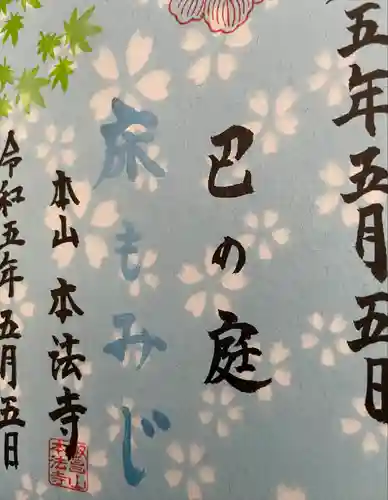 五年五月五日
巳の庭
床もみじ
本山 本法寺
令和五年五月五日
本法寺